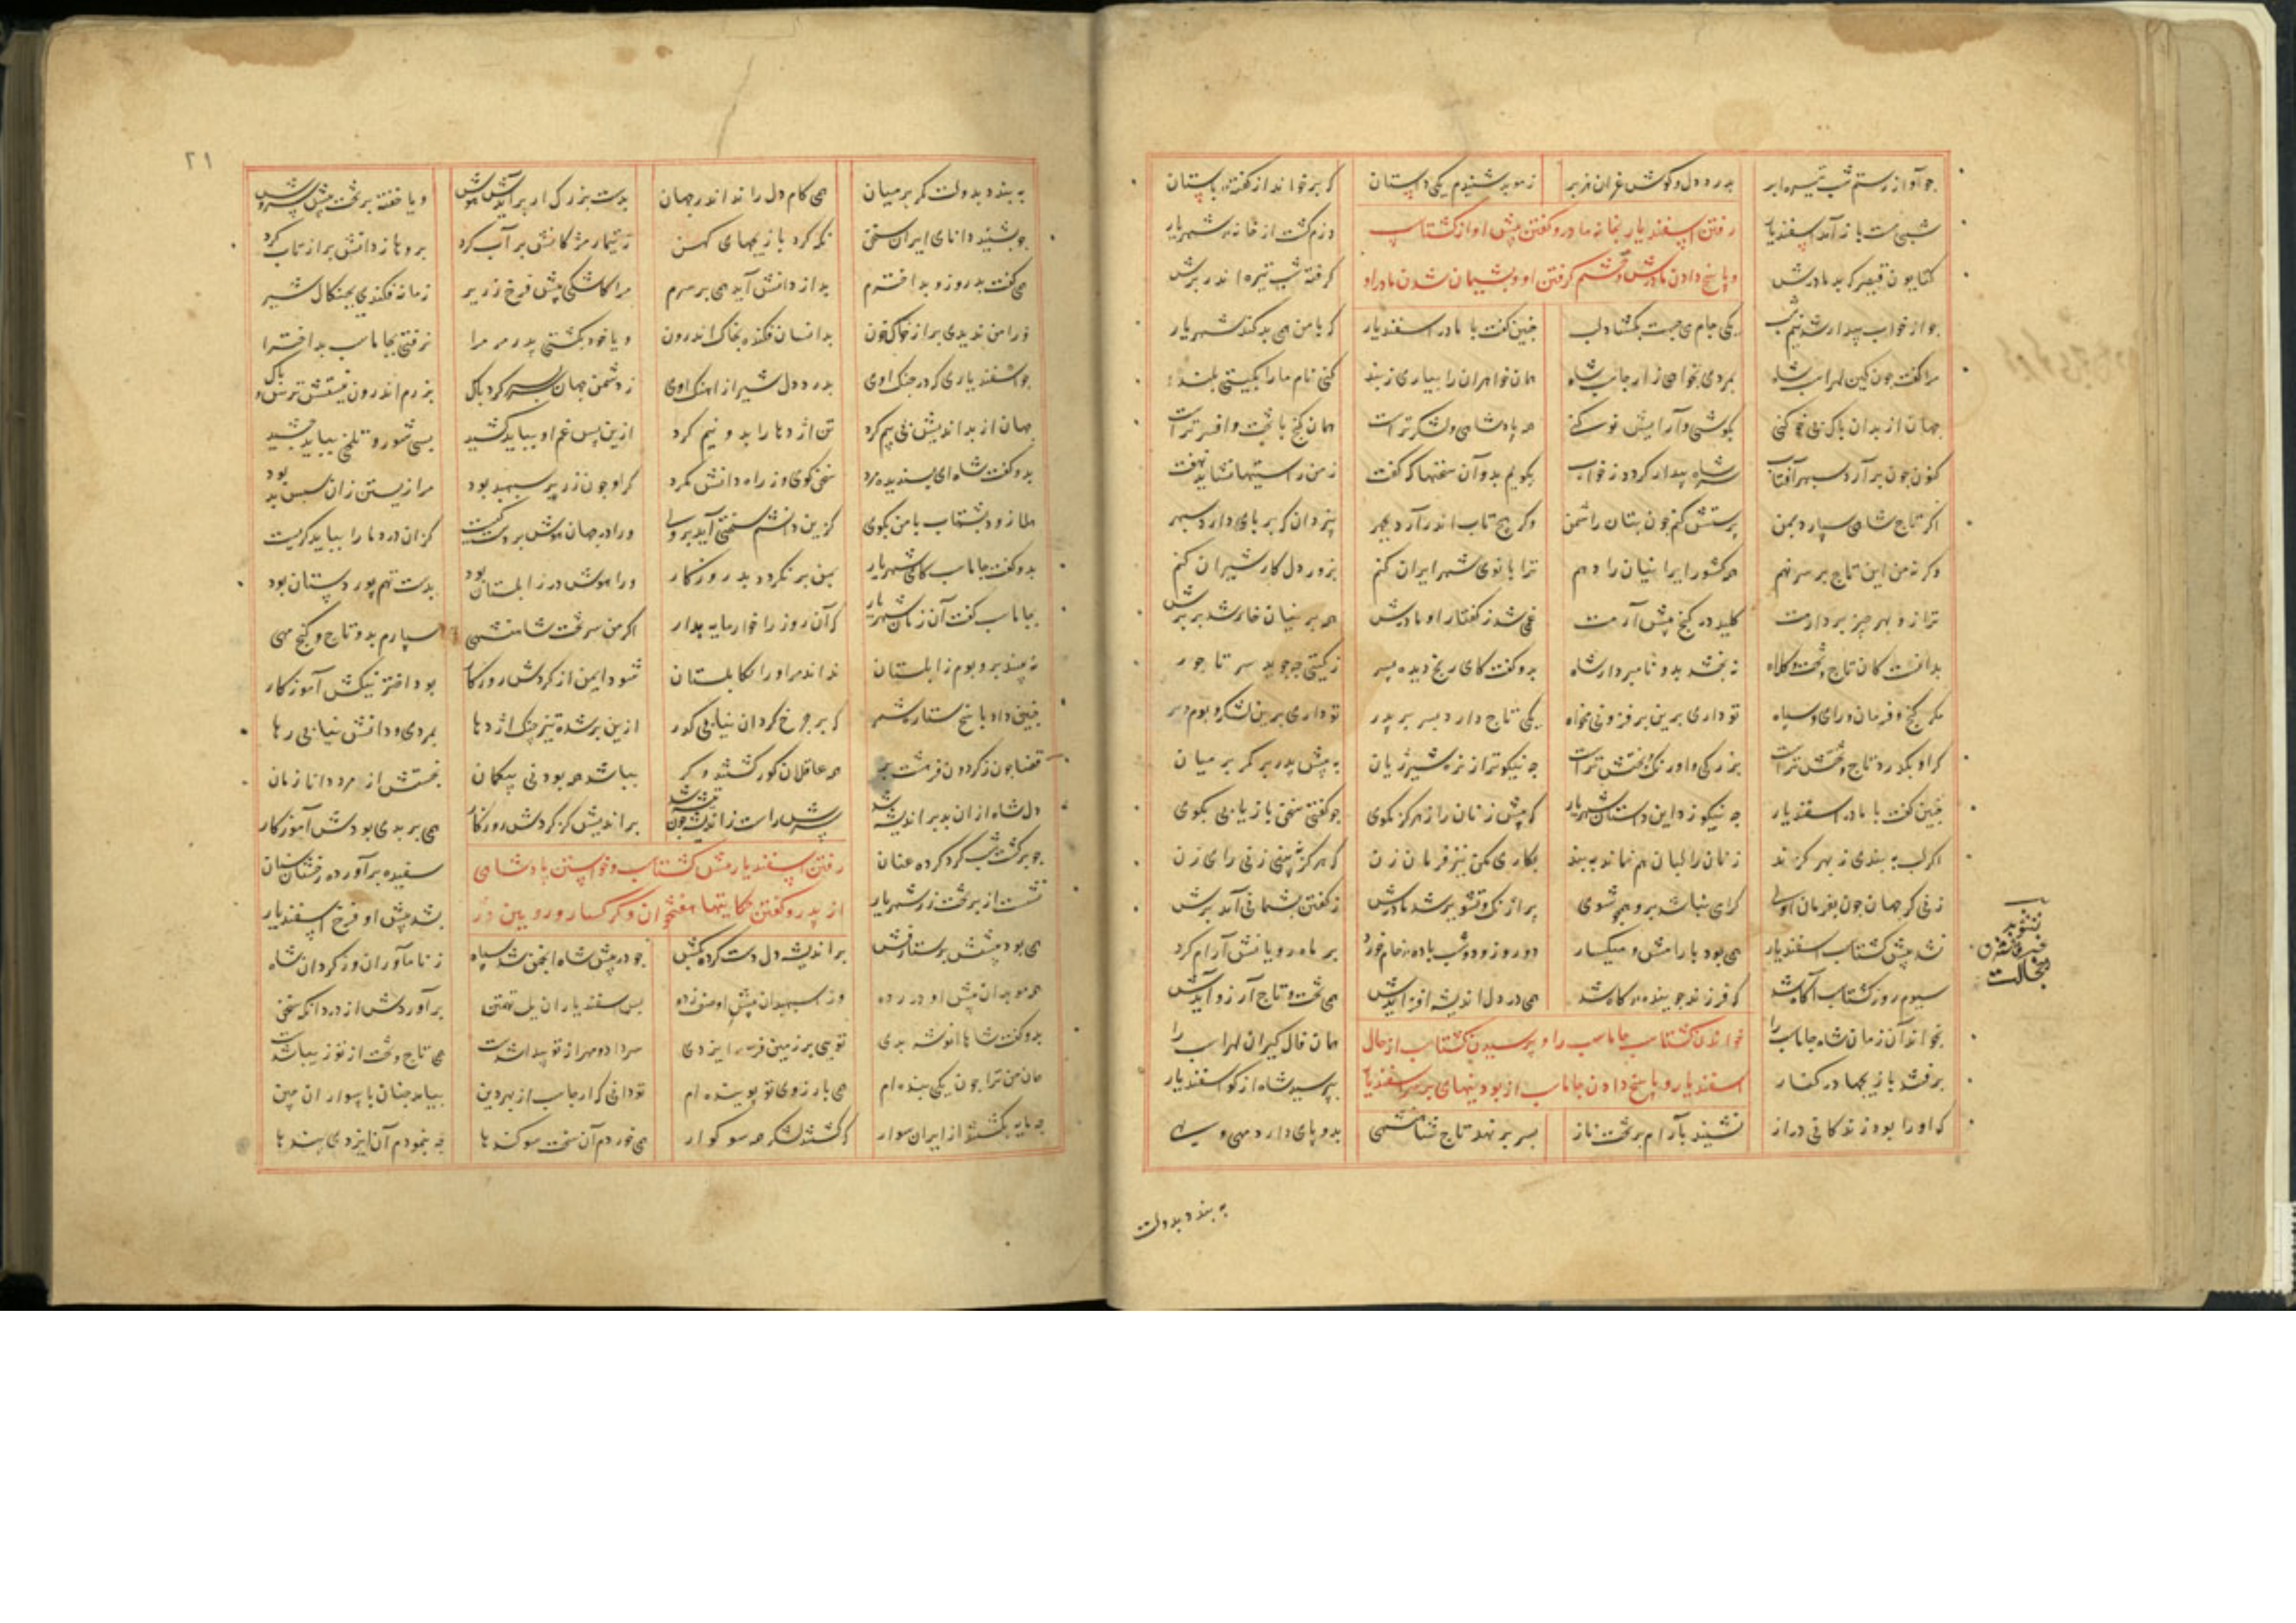 چو آواز رستم شب تیره ابر بدرد دل و گوش غران هزبر ز موبد شنیدم یکی داستان که برخواند از گفته باستان
شبی مست باز آمد اسفندیار دژم گشت از خانه شهریار
رفتن اسفندیار بخانه مادر و گفتن پیش او از گشتاسپ
کتایون قیصر که بد مادرش گرفته شب تیره اندر برش
و پاسخ دادن مادرش و خشم گرفتن او و پشیمان شدن مادر او
چو از خواب بیدار شد نیم شب یکی جام می جست بگشاد لب چنین گفت با مادر اسفندیار که با من همی بد کند شهریار
مرا گفت چون کین لهراسب شاه بمردی بخواهی ز ارجاسب شاه همان خواهران را بیاری ز بند کنی نام ما را بگیتی بلند
جهان از بدان پاک بی خو کنی بکوشی و آرایش نو کنی همه پادشاهی و لشکر تراست همان گنج با تخت و افسر تراست
کنون چون برآرد سپهر آفتاب سر شاه بیدار گردد ز خواب بگویم بدو آن سخنها که گفت ز من راستیها نشاید نهفت
اگر تاج شاهی سپارد بمن پرستش کنم چون بتان را شمن وگر هیچ تاب اندر آرد بچهر بیزدان که برپای دارد سپهر
وگرنه من این تاج بر سر نهم همه کشور ایرانیان را دهم ترا بانوی شهر ایران کنم بزور دل کار شیران کنم
بدانست کان تاج و تخت و کلاه نه بخشد بدو نامبردار شاه بدو گفت کای رنج دیده پسر ز گیتی چه جوید سر تاجور
مگر گنج و فرمان و رای و سپاه تو داری برین بر فزونی مخواه یکی تاج دارد پسر بر پدر تو داری برین لشکر و بوم و بر
که او بگذرد تاج و تختش تراست بزرگی و اورنگ و بختش تراست چه نیکوتر از نره شیر ژیان به پیش پدر بر کمر بر میان
چنین گفت با مادر اسفندیار چه نیکو زد این داستان شهریار که پیش زنان راز هرگز مگوی چو گفتی سخن بازیابی بکوی
بکاری مکن نیز فرمان زن که هرگز نبینی زنی رای زن
پر از ننگ و تشویر شد مادرش ز گفتن پشیمانی آمد برش
نشد پیش گشتاسب اسفندیار همی بود با رامش و میگسار دو روز و دو شب باده خام خورد بر ماه رویانش آرام کرد
سیوم روز گشتاسب آگاه شد که فرزند جوینده گاه شد همی در دل اندیشه افزایدش همی تخت و تاج آرزو آیدش
بخواند آن زمان شاه جاماسب را همان فال گیران لهراسب را
خواندن گشتاسب جاماسب را و پرسیدن گشتاسب از حال
برفتند با زیجها در کنار بپرسید شاه از گو اسفندیار
اسفندیار و پاسخ دادن جاماسب از بودنیهای بر سر اسفندیار
که او را بود زندگانی دراز نشیند بآرام بر تخت ناز بسر بر نهد تاج شاهنشهی بدو پای دارد مهی و بهی
به بندد بدولت
تشویر
خجالت
۲۱
به بندد بدولت کمر بر میان همی کام دل راند اندر جهان بدست بزرگی ار برآیدش هوش و یا خفته بر تخت پیش سروش
چو بشنید دانای ایران سخن نگه کرد با زیجهای کهن ز تیمار مژگانش پر آب کرد بروها ز دانش پر از تاب کرد
همی گفت بد روز و بد اخترم بد از دانش آید همی بر سرم مرا کاشکی پیش فرخ زریر زمانه فکندی بچنگال شیر
ورا من ندیدی بر از خاک و خون بدانسان فکنده بخاک اندرون و یا خود بکشتی پدر مر مرا نرفتی بجاماسب بد اخترا
چو اسفندیاری که در جنگ اوی بدرد دل شیر از آهنگ اوی ز دشمن جهان سربسر کرد پاک برزم اندرون نیستش ترس و باک
جهان از بداندیش بی بیم کرد تن اژدها را بدو نیم کرد ازین پس غم او بباید کشید بسی شور و تلخی بباید چشید
بدو گفت شاه ای پسندیده مرد سخن گوی وز راه دانش مگرد گر او چون زریر سپهبد بود مرا زیستن زان سپس بد بود
هلا زود بشتاب با من بگوی کزین دانشم سختی آید بروی ورا در جهان هوش بر دست کیست کزان درد ما را بباید گریست
بدو گفت جاماسب کای شهریار بمن بر نگردد بد روزگار ورا هوش در زابلستان بود بدست تهم پور دستان بود
بجاماسب گفت آن زمان شهریار که آن روز را خوار مایه مدار اگر من سر تخت شاهنشهی سپارم بدو تاج و گنج مهی
نه بیند بر و بوم زابلستان نداند مر او را بکابلستان شود ایمن از گردش روزگار بود اختر نیکش آموزگار
چنین داد پاسخ ستاره شمر که بر چرخ گردان نیابی گذر ازین بر شده تیز چنگ اژدها بمردی و دانش نیابی رها
قضا چون ز گردون فروهشت پر همه عاقلان کور گشتند و کر بباشد همه بودنی بیگمان نجستش ازو مرد دانا زمان
دل شاه ازان بد پر اندیشه شد بر اندیش کز گردش روزگار همی بر بدی بودش آموزگار
چو برگشت شب گرد کرده عنان سفیده برآورد رخشان سنان
رفتن اسفندیار پیش گشتاسب و خواستن پادشاهی
نشست از بر تخت زر شهریار بشد پیش او فرخ اسفندیار
از پدر و گفتن حکایتها هفتخوان و گرگسار و رویین دژ
همی بود پیشش پرستارفش پر اندیشه دل دست کرده بکش چو در پیش شاه انجمن شد سپاه ز نام آوران وز گردان شاه
همه موبدان پیش او در رده وز اسپهبدان پیش او صف زده پس اسفندیار آن یل تهمتن برآورد از درد آنگه سخن
بدو گفت شاها انوشه بدی توی بر زمین فره ایزدی سر داد و مهر از تو پیداشت همی تاج و تخت از تو زیبا شدست
همان من ترا چون یکی بنده ام همی بآرزوی تو پوینده ام تو دانی که ارجاسب از بهر دین بیامد چنان با سواران چین
چه مایه بکشتند از ایران سوار که گشتند لشکر همه سوگوار همی خوردم آن سخت سوگندها چه بنمودم آن ایزدی پندها